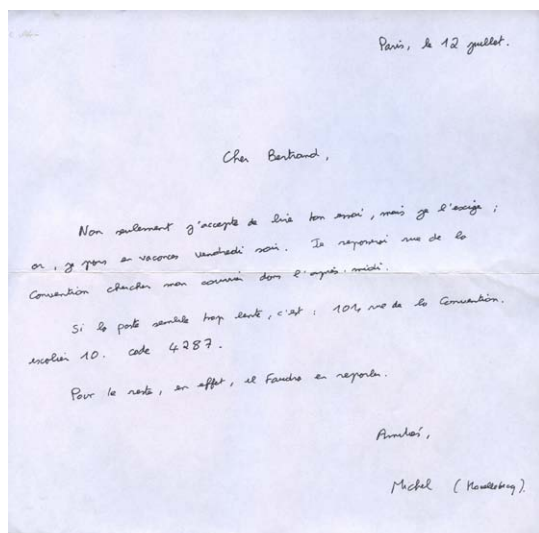 Paris, le 12 juillet.
Cher Bertrand,
Non seulement j'accepte de lire ton essai, mais je l'exige ;
or, je pars en vacances vendredi soir. Je repasserai rue de la
Convention chercher mon courrier dans l'après-midi.
Si la poste semble trop lente, c'est : 101, rue de la Convention.
escalier 10. code 4287.
Pour le reste, en effet, il faudra en reparler.
Amitiés,
Michel (Houellebecq).